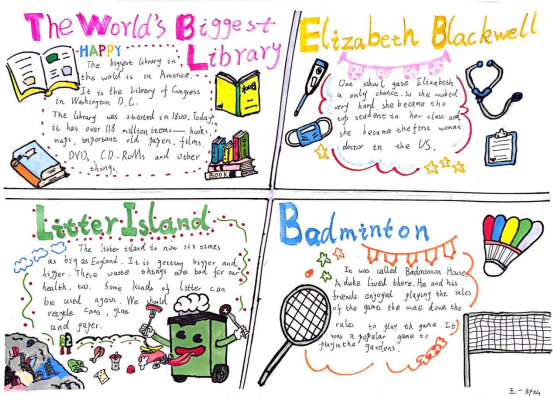 The World's Biggest
Library
HAPPY
The biggest library in
the world is in America.
It is the Library of Congress
in Washington D.C.
The library was started in 1800. Today,
it has over 118 million items — books,
maps, important old papers, films,
DVD, CD-RoMs and other
things.
BOOK
Elizabeth Blackwell
One school gave Elizabeth
a only chance. So she worked
very hard. she became the
top student in her class and
she became the first woman
doctor in the US.
Litter Island
The litter island is now six times
as big as England. It is getting bigger and
bigger. These waste things are bad for our
health, too. Some kinds of litter can
be used again. We should
recycle cans, glass
and paper.
Badminton
It was called Badminton House,
A duke lived there. He and his
friends enjoyed playing the
of the game the down the
rules to play the game. It
was a popular game to
play in the gardens.